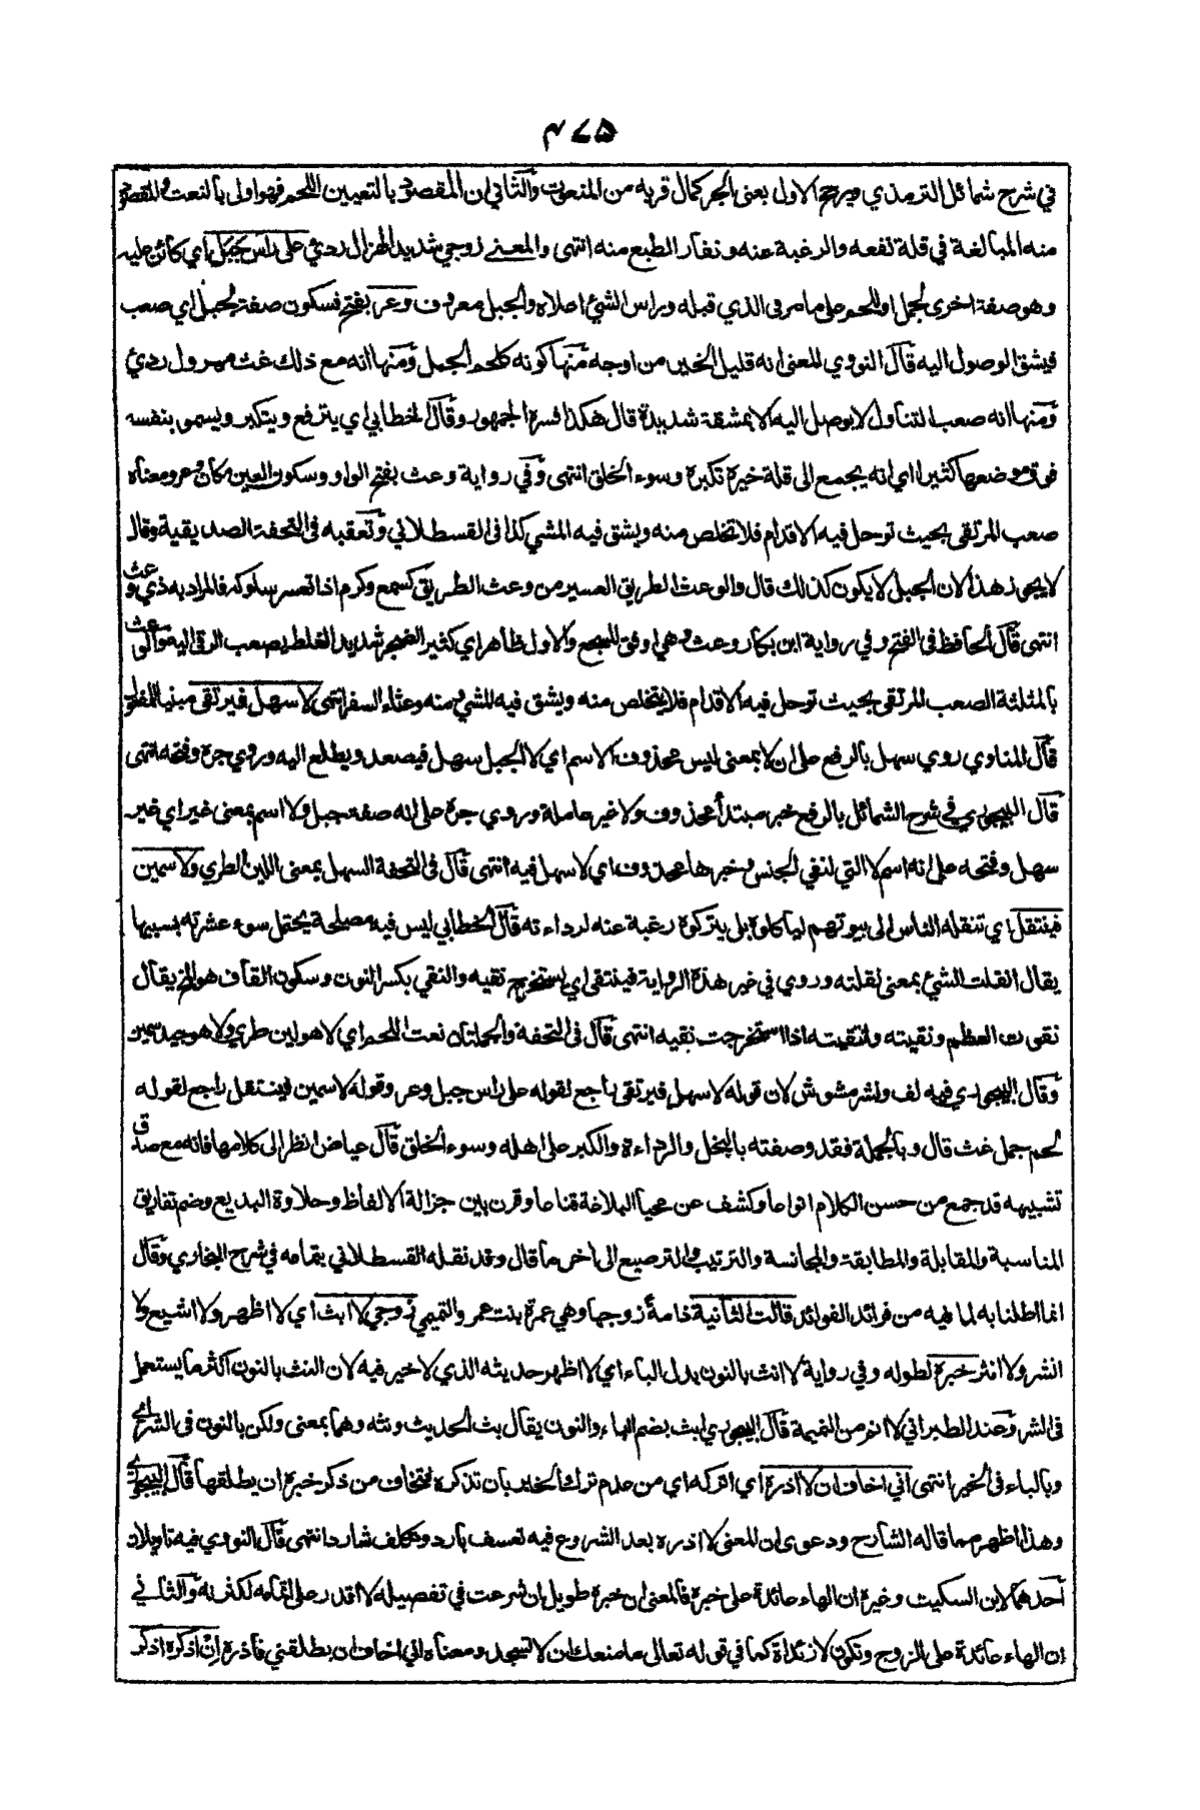 ٤٧٥
في شرح شمائل الترمذي ويرجح الاول يعنى بالجر كمال قربه من المنعوت والثاني ان المقصود بالتعيين اللحم فهو اولى بالنعت والمقصود
منه المبالغة في قلة نفعه والرغبة عنه ونفار الطبع منه انتهى والمعنى زوجي شديد الهزال ردئ على راس جبل اي كائن عليه
وهو صفة اخرى لجمل او للحم على ما مر في الذي قبله وبراس الشئ اعلاه والجبل معروف وعر بفتح فسكون صفة لجبل اي صعب
فيشق الوصول اليه قال النووي المعنى انه قليل الخير من اوجه منها كونه كلحم الجمل ومنها انه مع ذلك غث مهزول ردئ
ومنها انه صعب التناول لا يوصل اليه الا بمشقة شديدة قال هكذا فسره الجمهور وقال الخطابي اي يترفع ويتكبر ويسمو بنفسه
فوق موضعها كثيرا اي انه يجمع الى قلة خيره تكبره وسوء الخلق انتهى وفي رواية وعث بفتح الواو وسكون العين مكان وعر ومعناه
صعب المرتقى بحيث توحل فيه الاقدام فلا تخلص منه ويشق فيه المشي كذا في القسطلاني وتعقبه في التحفة الصديقية وقال
لا يجوز هذا لان الجبل لا يكون كذلك قال والوعث الطريق العسير من وعث الطريق كسمع وكرم اذا تعسر سلوكه فالمراد به ذي وعث
انتهى قال الحافظ في الفتح وفي رواية ابن بكار وعث وهي اوفق للسجع والاول ظاهر اي كثير الضجر شديد الغلظ يصعب الرقي اليه والوعث
بالمثلثة الصعب المرتقى بحيث توحل فيه الاقدام فلا يتخلص منه ويشق فيه المشي ومنه وعثاء السفر انتهى لا سهل فيرتقى مبنيا للمفعول
قال المناوي روي سهل بالرفع على ان لا بمعنى ليس محذوف الاسم اي لا الجبل سهل فيصعد ويطلع اليه وروي جره وفتحه انتهى
قال البيجوري في شرح الشمائل بالرفع خبر مبتدأ محذوف ولا غير عاملة وروي جره على انه صفة جبل ولا اسم بمعنى غير اي غير
سهل وفتحه على انه اسم لا التي لنفي الجنس وخبرها محذوف اي لا سهل فيه انتهى قال في التحفة السهل بمعنى اللين الطري ولا سمين
فينتقل اي تنقله الناس الى بيوتهم ليأكلوه بل يتركوه رغبة عنه لرداءته قال الخطابي ليس فيه مصلحة يحتمل سوء عشرته بسببها
يقال انتقلت الشئ بمعنى نقلته وروي في غير هذه الرواية فينتقى اي يستخرج نقيه والنقي بكسر النون وسكون القاف هو المخ يقال
نقوت العظم ونقيته وانتقيته اذا استخرجت نقيه انتهى قال في التحفة والجملتان نعت اللحم اي لا هو لين طري ولا هو جيد سمين
وقال البيجوري فيه لف ونشر مشوش لان قوله لا سهل فيرتقى راجع لقوله على راس جبل وعر وقوله لا سمين فينتقل راجع لقوله
لحم جمل غث قال وبالجملة فقد وصفته بالبخل والرداءة والكبر على اهله وسوء الخلق قال عياض انظر الى كلامها فانه مع صدق
تشبيهه قد جمع من حسن الكلام انواعا وكشف عن محيا البلاغة قناعا وقرن بين جزالة الالفاظ وحلاوة البديع وضم تفاريق
المناسبة والمقابلة والمطابقة والمجانسة والترتيب والترصيع الى اخر ما قال وقد نقله القسطلاني بتمامه في شرح البخاري وقال
انما اطلنا به لما فيه من فرائد الفوائد قالت الثانية ذامة زوجها وهي عمرة بنت عمرو التميمي زوجي لا ابث اي لا اظهر ولا اشيع ولا
انشر ولا انثر خبره لطوله وفي رواية لا انث بالنون بدل الباء اي لا اظهر حديثه الذي لا خير فيه لان النث بالنون اكثر ما يستعمل
في الشر وعند الطبراني لا انم من النميمة قال البيجوري ابث بضم الباء والنون يقال بث الحديث ونثه وهما بمعنى ولكن بالنون في الشر اي
وبالباء في الخير انتهى اني اخاف ان لا اذره اي اتركه اي من عدم ترك الخبر بان تذكره فتخاف من ذكر خبره ان يطلقها قال البيجوري
وهذا اظهر مما قاله الشارح ودعوى ان المعنى لا اذره بعد الشروع فيه تعسف بارد وتكلف شارد انتهى قال النووي فيه تاويلان
احدهما لابن السكيت وغيره ان الهاء عائدة على خبره فالمعنى ان خبره طويل ان شرعت في تفصيله لا اقدر على اتمامه لكثرته والثاني
ان الهاء عائدة على الزوج وتكون لا زائدة كما في قوله تعالى ما منعك ان لا تسجد ومعناه اني اخاف ان يطلقني فاذره ان اذكره اذكر